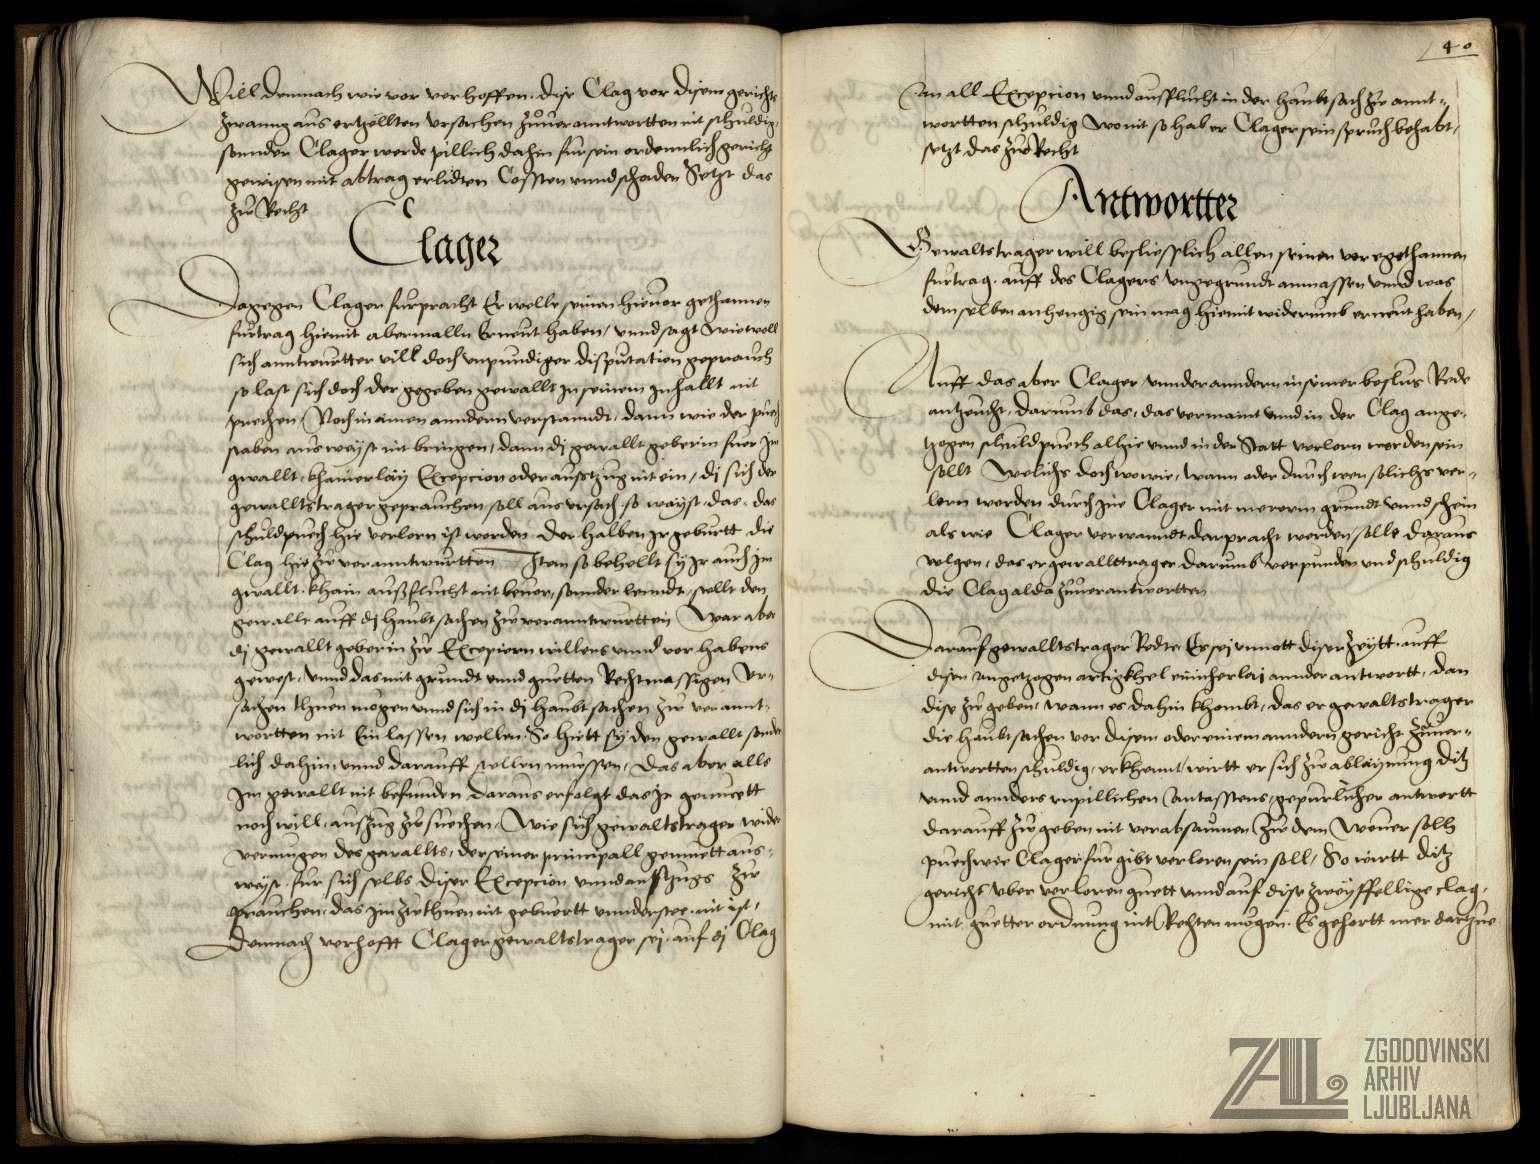 Will demnach wie vor verhoffen, dise Clag vor disem gerichts
zwanng aus ertzellten ursachen zuverantwortten nit schuldig,
sonnder Clager werde pillich dahin fur sein ordennlich gericht
gewisen mit abtrag erlidten Cossten unnd schaden Setzt das
zw Recht
Clager
Dagegen Clager furpracht Er welle seinen hievor gethannen
furtrag hiemit abermalln Erneut haben, unnd sagt wiewoll
sich anntwurtter vill doch unpundiger disputation geprauch
so last sich doch der gegeben gewallt in seinem Inhallt nit
prechen Noch in ainen anndern verstanndt, dann wie der puech
staben ausweyst nit bringen, dann dj gewallt geberin fuer Im
gwallt, khainerlay Excepcion oder aufzug nit ein, dj sich der
gewalltstrager geprauchen soll aus ursach so wayst, das, das
schuldpuech hie verlorn ist worden derhalben Ir geburtt die
Clag hie zw veranntwurtten Item so behellt sy Ir auch Im
gwallt khain außflucht nit bevor, sonnder lenndt, stellt den
gewallt auff dj haubtsachen zw veranntwurtten War aber
dj gewallt geberin zw Excepiern willens unnd vorhabens
gewest, unnd das mit grundt unnd guetten Rechtmassigen Ur-
sachen thuen mogen unnd sich in dj haubtsachen zw verannt-
wortten nit Einlassen wellen, So hiett sy den gewallt sonder
lich dahin unnd darauff stellen muessen, Das aber alls
Im gewallt nit befunden daraus erfolgt das Ir gemuett
noch will, auszug zw suechen, Wie sich gewaltstrager wider
vermugen des gewallts, der seiner principall gemuett aus-
weyst fur sich selbs diser Excepcion unnd aufzugs zw
prauchen, das Im zwthuen nit gebuertt unnderstee nit ist,
Demnach verhofft Clager gewaltstrager sej auf dj Clag
40
an all Excepcion unnd ausflucht in der haubtsach zw annt-
wortten schuldig Womit so hab er Clager sein spruch behabt,
setzt das zw Recht
Antwortter
Gewaltstrager will besliesslich allen seinen vor egethannen
furtrag auff des Clagers ungegrundt anmassen unnd was
demselben anhengig sein mag hiemit widerumb erneut haben,
Auff das aber Clager unnder anndern in seiner beslus Rede
antzeucht, darumb das, das vermaint unnd in der Clag ange-
zogen schuldpuech alhie unnd in der Statt verlorn worden sein
sollt Welichs doch wo wie, wann oder durch wen solichs ver-
lorn worden durch Ine Clager mit merern grundt unnd schein
als wie Clager verwanndt darpracht worden, solle daraus
volgen, das er gewallttrager darumb verpunden und schuldig
die Clag alda zuverantwortten
Darauf gewalltstrager Redte Er sej unnott diser Zeytt auff
disen angetzogen artigkhel ainicherlaj annder antwortt, dan
dise zw geben, wann es dahin khombt, das er gewaltstrager
die haubtsachen vor disem oder einem anndern gericht zuver-
antwortten schuldig, erkhennt, wirtt er sich zw ablaynung ditz
unnd annders unpillichen antasstens, gepurlicher antwortt
darauff zw geben nit verabsaumen Zw dem Wever soll
puech wie Clager fur gibt verloren sein soll, So wirtt ditz
gericht uber verloren guett unnd auf dise zweyffellige clag,
mit guetter ordnung nit Rechten mogen, Es gehortt mer dartzue
ZGODOVINSKI
ARHIV
LJUBLJANA